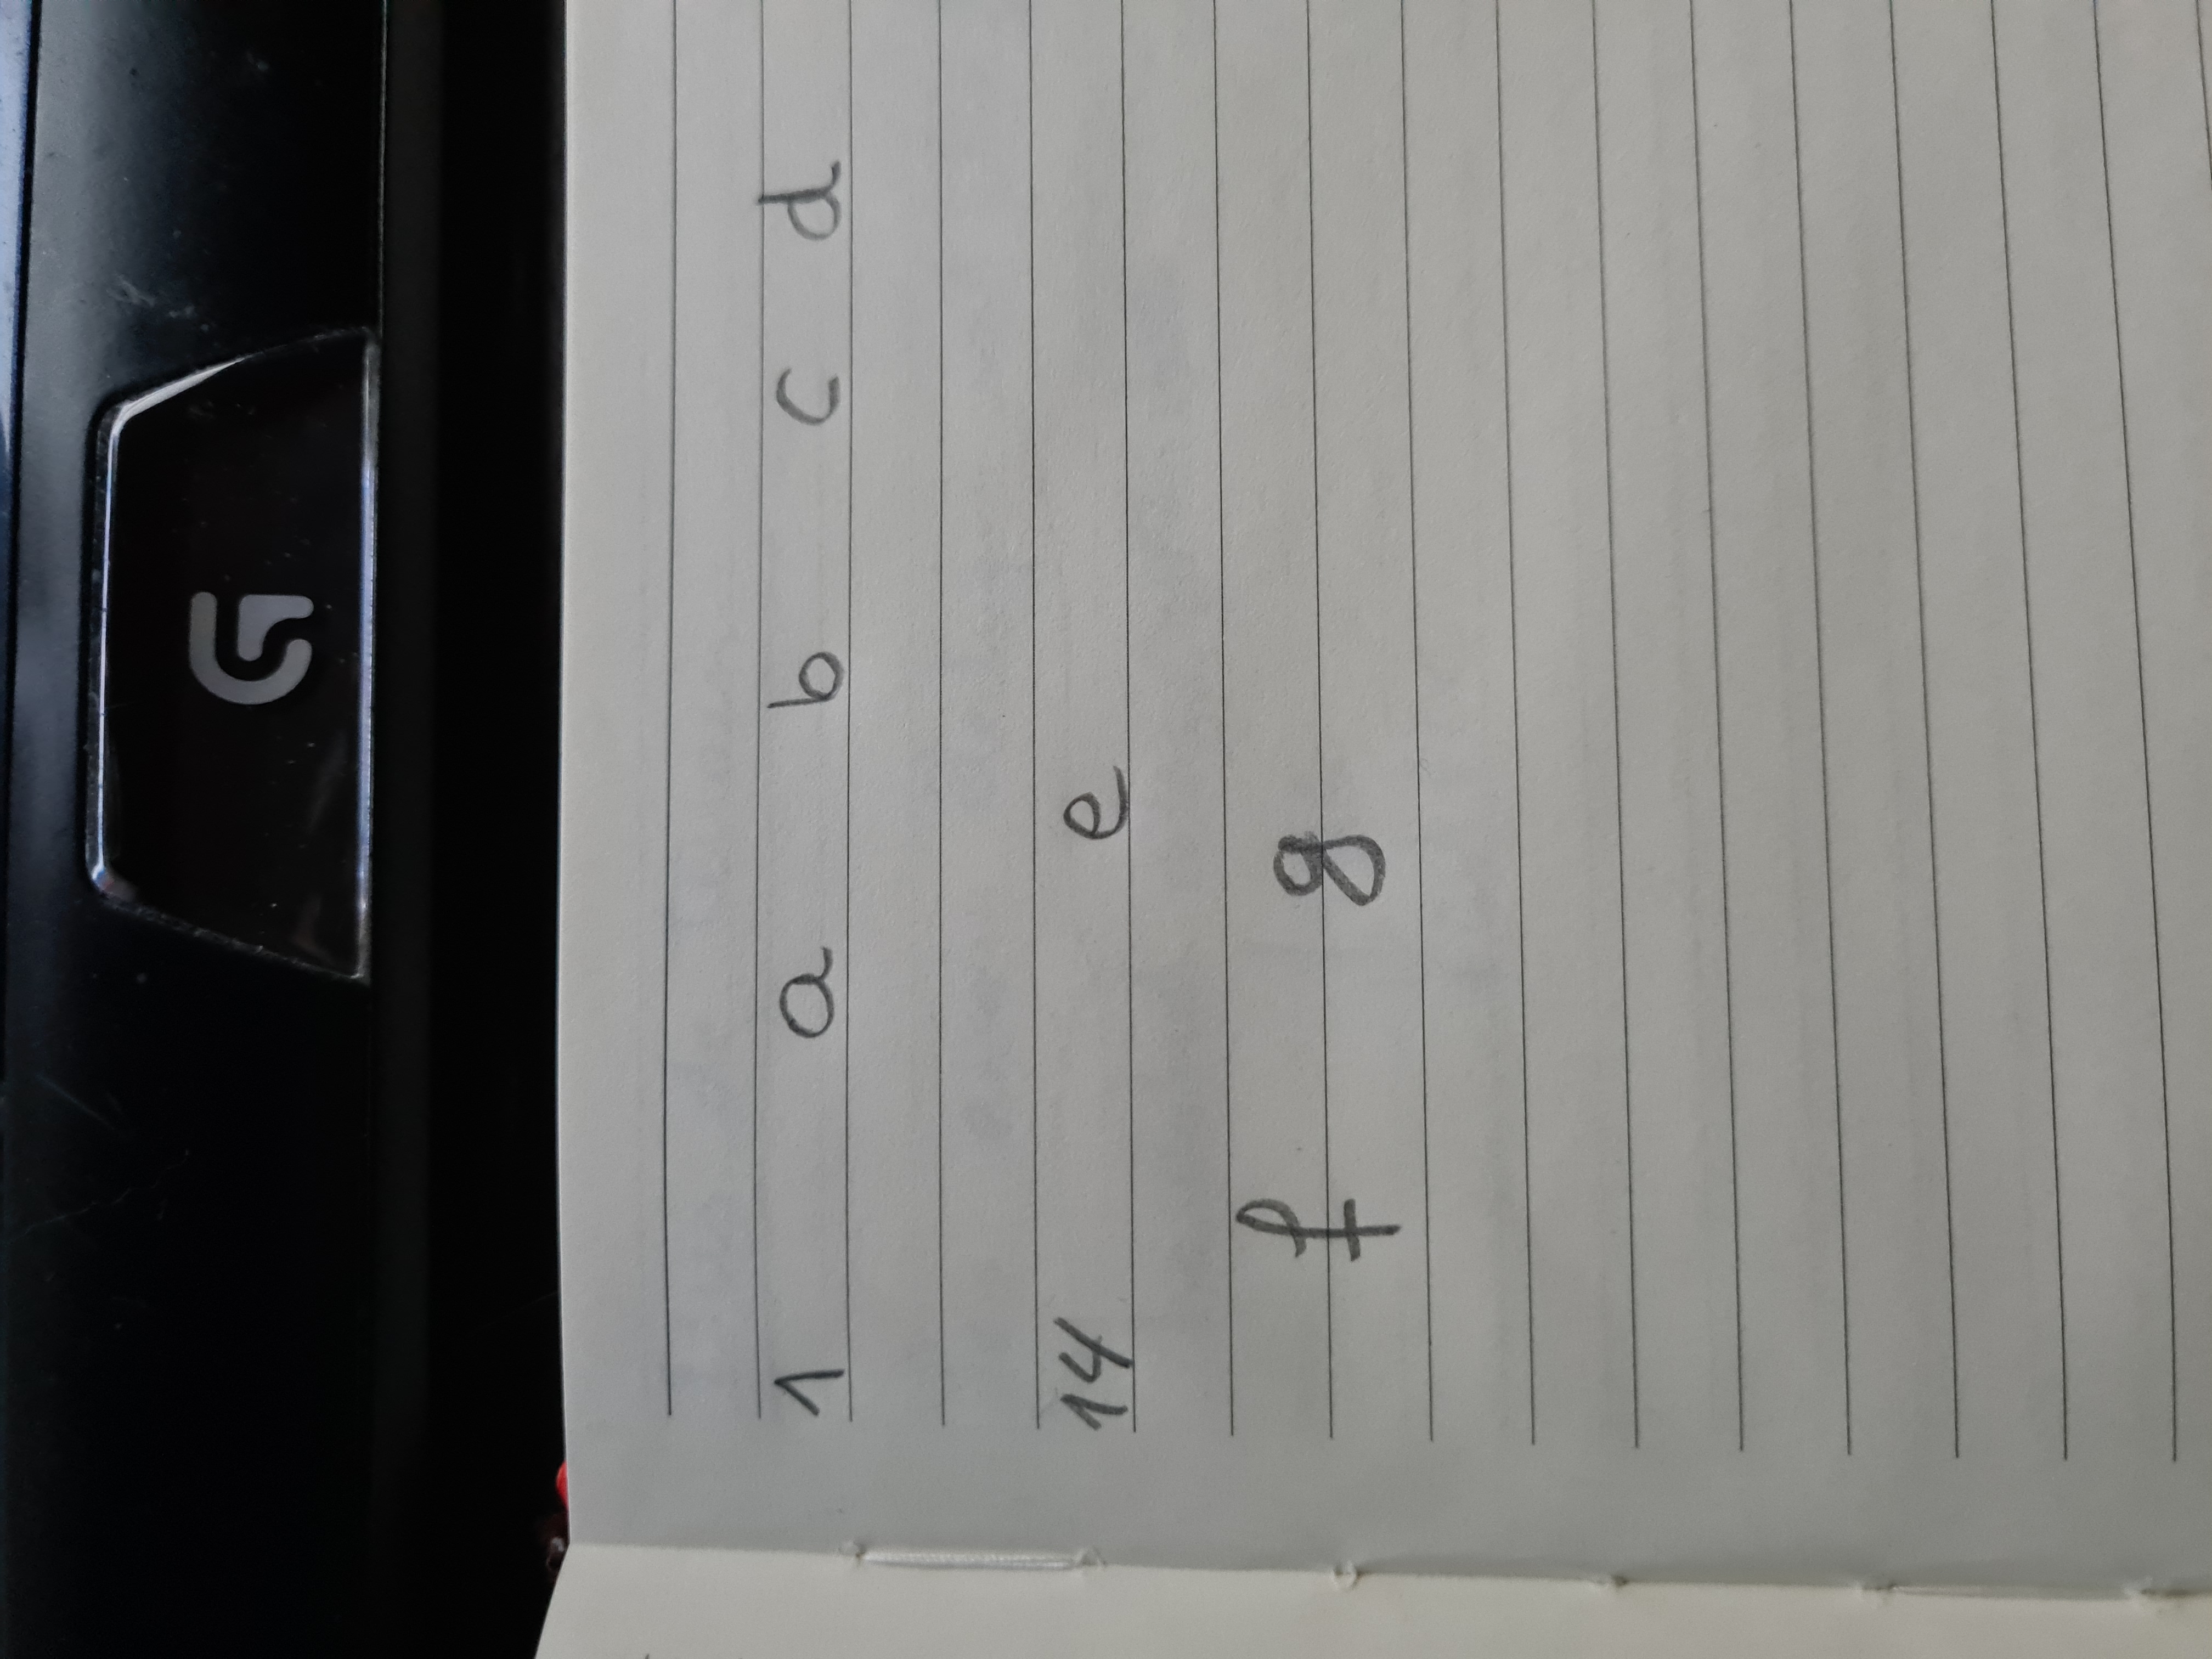 G
1 a b c d
14 e
f g